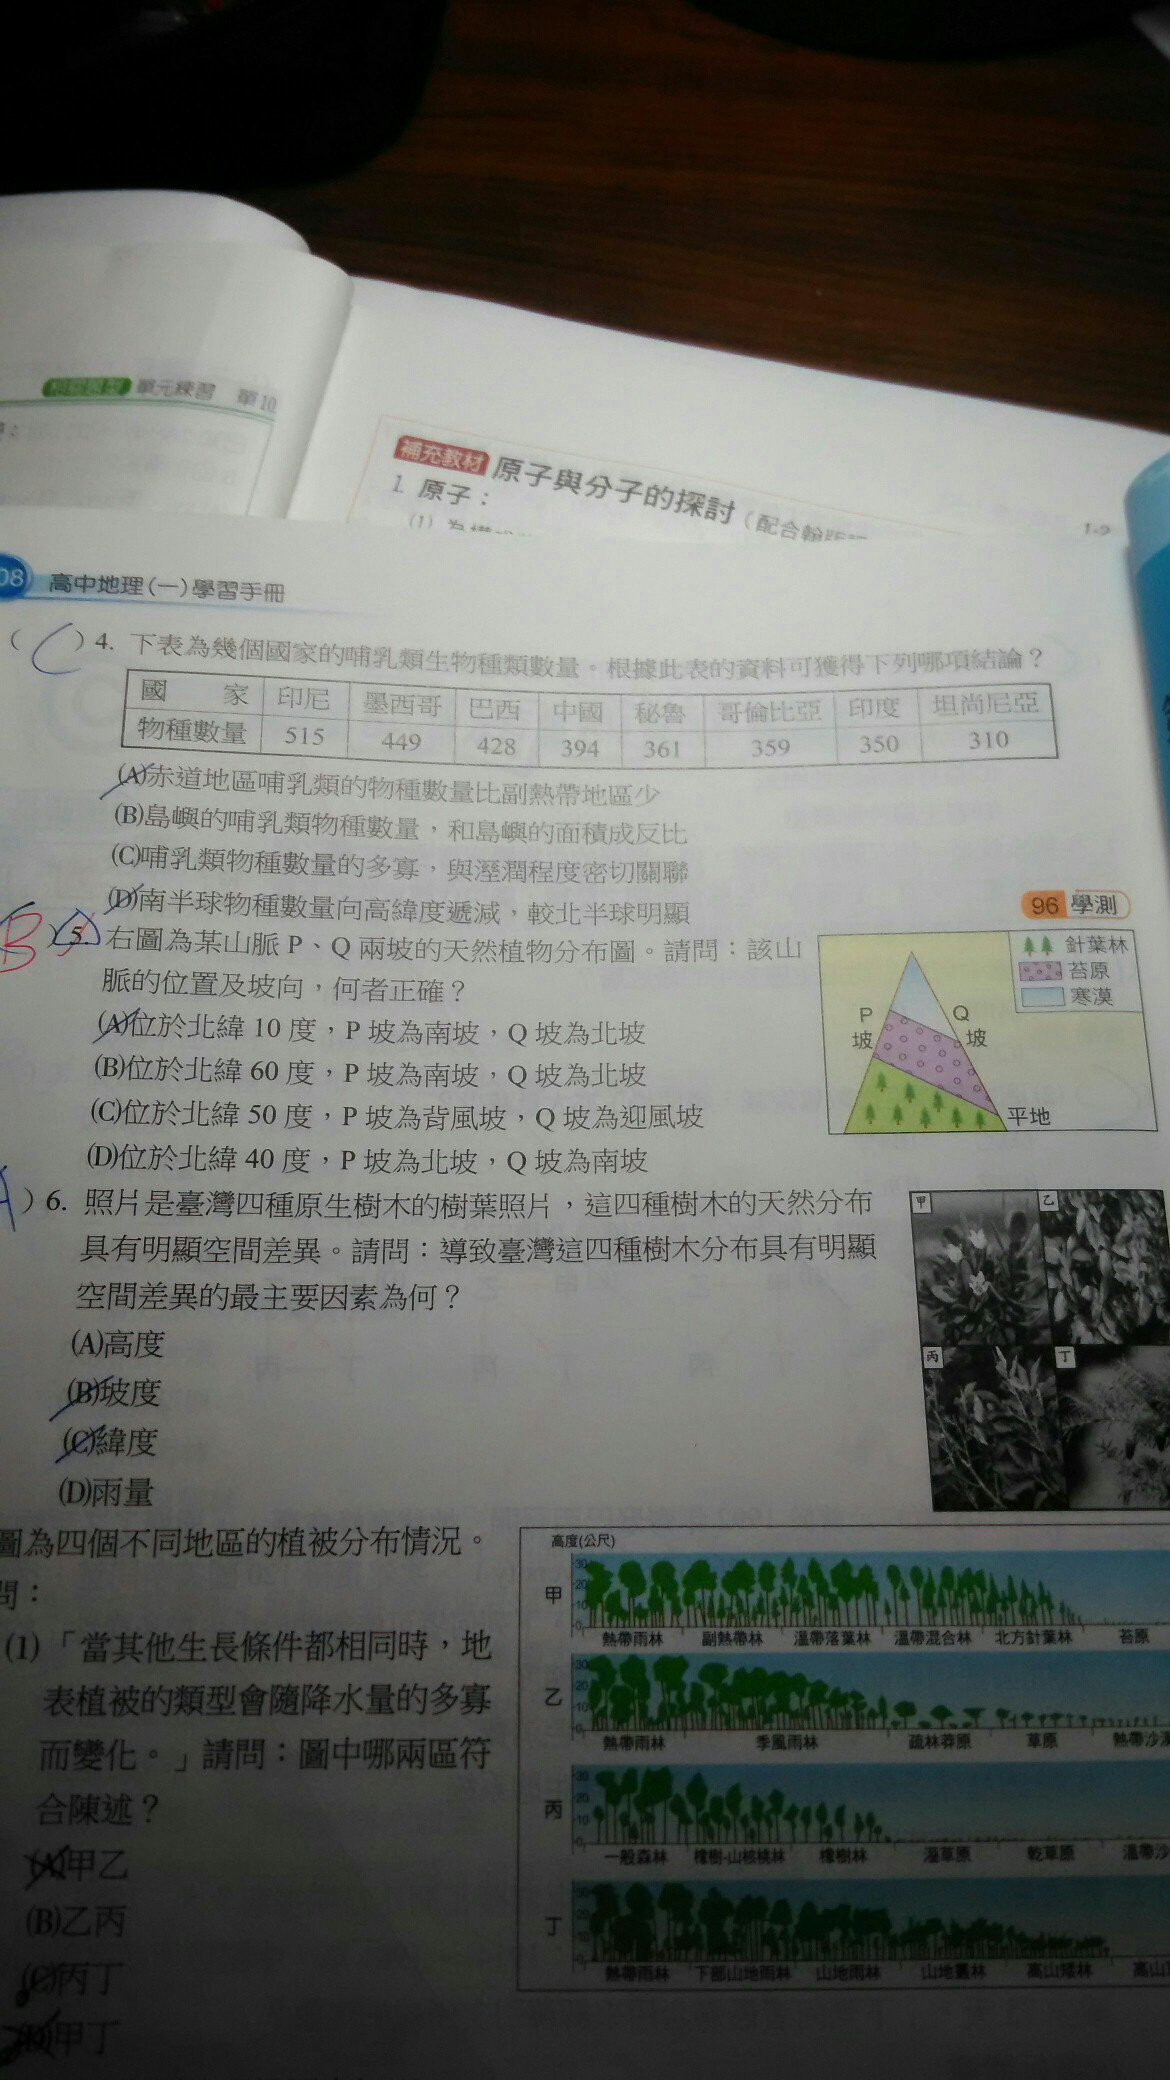 單元練習 單10
補充教材 原子與分子的探討(配合翰版
1. 原子:
1-9
08 高中地理(一)學習手冊
( C )4. 下表為幾個國家的哺乳類生物種類數量。根據此表的資料可獲得下列哪項結論?
國 家 印尼 墨西哥 巴西 中國 秘魯 哥倫比亞 印度 坦尚尼亞
物種數量 515 449 428 394 361 359 350 310
(A)赤道地區哺乳類的物種數量比副熱帶地區少
(B)島嶼的哺乳類物種數量,和島嶼的面積成反比
(C)哺乳類物種數量的多寡,與溼潤程度密切關聯
(D)南半球物種數量向高緯度遞減,較北半球明顯
96 學測
B )5. 右圖為某山脈 P、Q 兩坡的天然植物分布圖。請問:該山
脈的位置及坡向,何者正確?
(A)位於北緯 10 度,P 坡為南坡,Q 坡為北坡
(B)位於北緯 60 度,P 坡為南坡,Q 坡為北坡
(C)位於北緯 50 度,P 坡為背風坡,Q 坡為迎風坡
(D)位於北緯 40 度,P 坡為北坡,Q 坡為南坡
針葉林
苔原
寒漠
P 坡
Q 坡
平地
A )6. 照片是臺灣四種原生樹木的樹葉照片,這四種樹木的天然分布
具有明顯空間差異。請問:導致臺灣這四種樹木分布具有明顯
空間差異的最主要因素為何?
(A)高度
(B)坡度
(C)緯度
(D)雨量
甲 乙
丙 丁
圖為四個不同地區的植被分布情況。
問:
(1)「當其他生長條件都相同時,地
表植被的類型會隨降水量的多寡
而變化。」請問:圖中哪兩區符
合陳述?
(A)甲乙
(B)乙丙
(C)丙丁
(D)甲丁
高度(公尺)
甲 30 20 10 0
熱帶雨林 副熱帶林 溫帶落葉林 溫帶混合林 北方針葉林 苔原
乙 30 20 10 0
熱帶雨林 季風雨林 疏林莽原 草原 熱帶沙漠
丙 30 20 10 0
一般森林 橡樹-山核桃林 橡樹林 溼草原 乾草原 溫帶沙
丁 30 20 10 0
熱帶雨林 下部山地雨林 山地雨林 山地叢林 高山矮林 高山